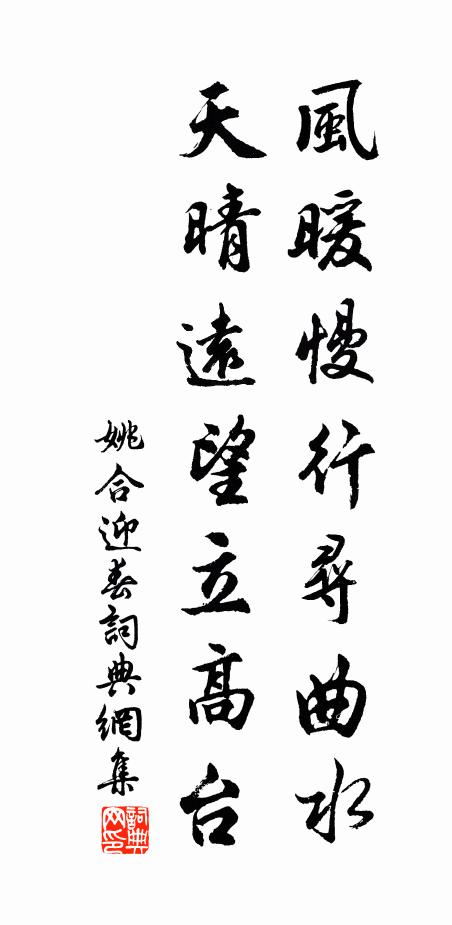 風暖慢行尋曲水
天晴遠望立高台
姚合迎春詞典網集
詞典網印